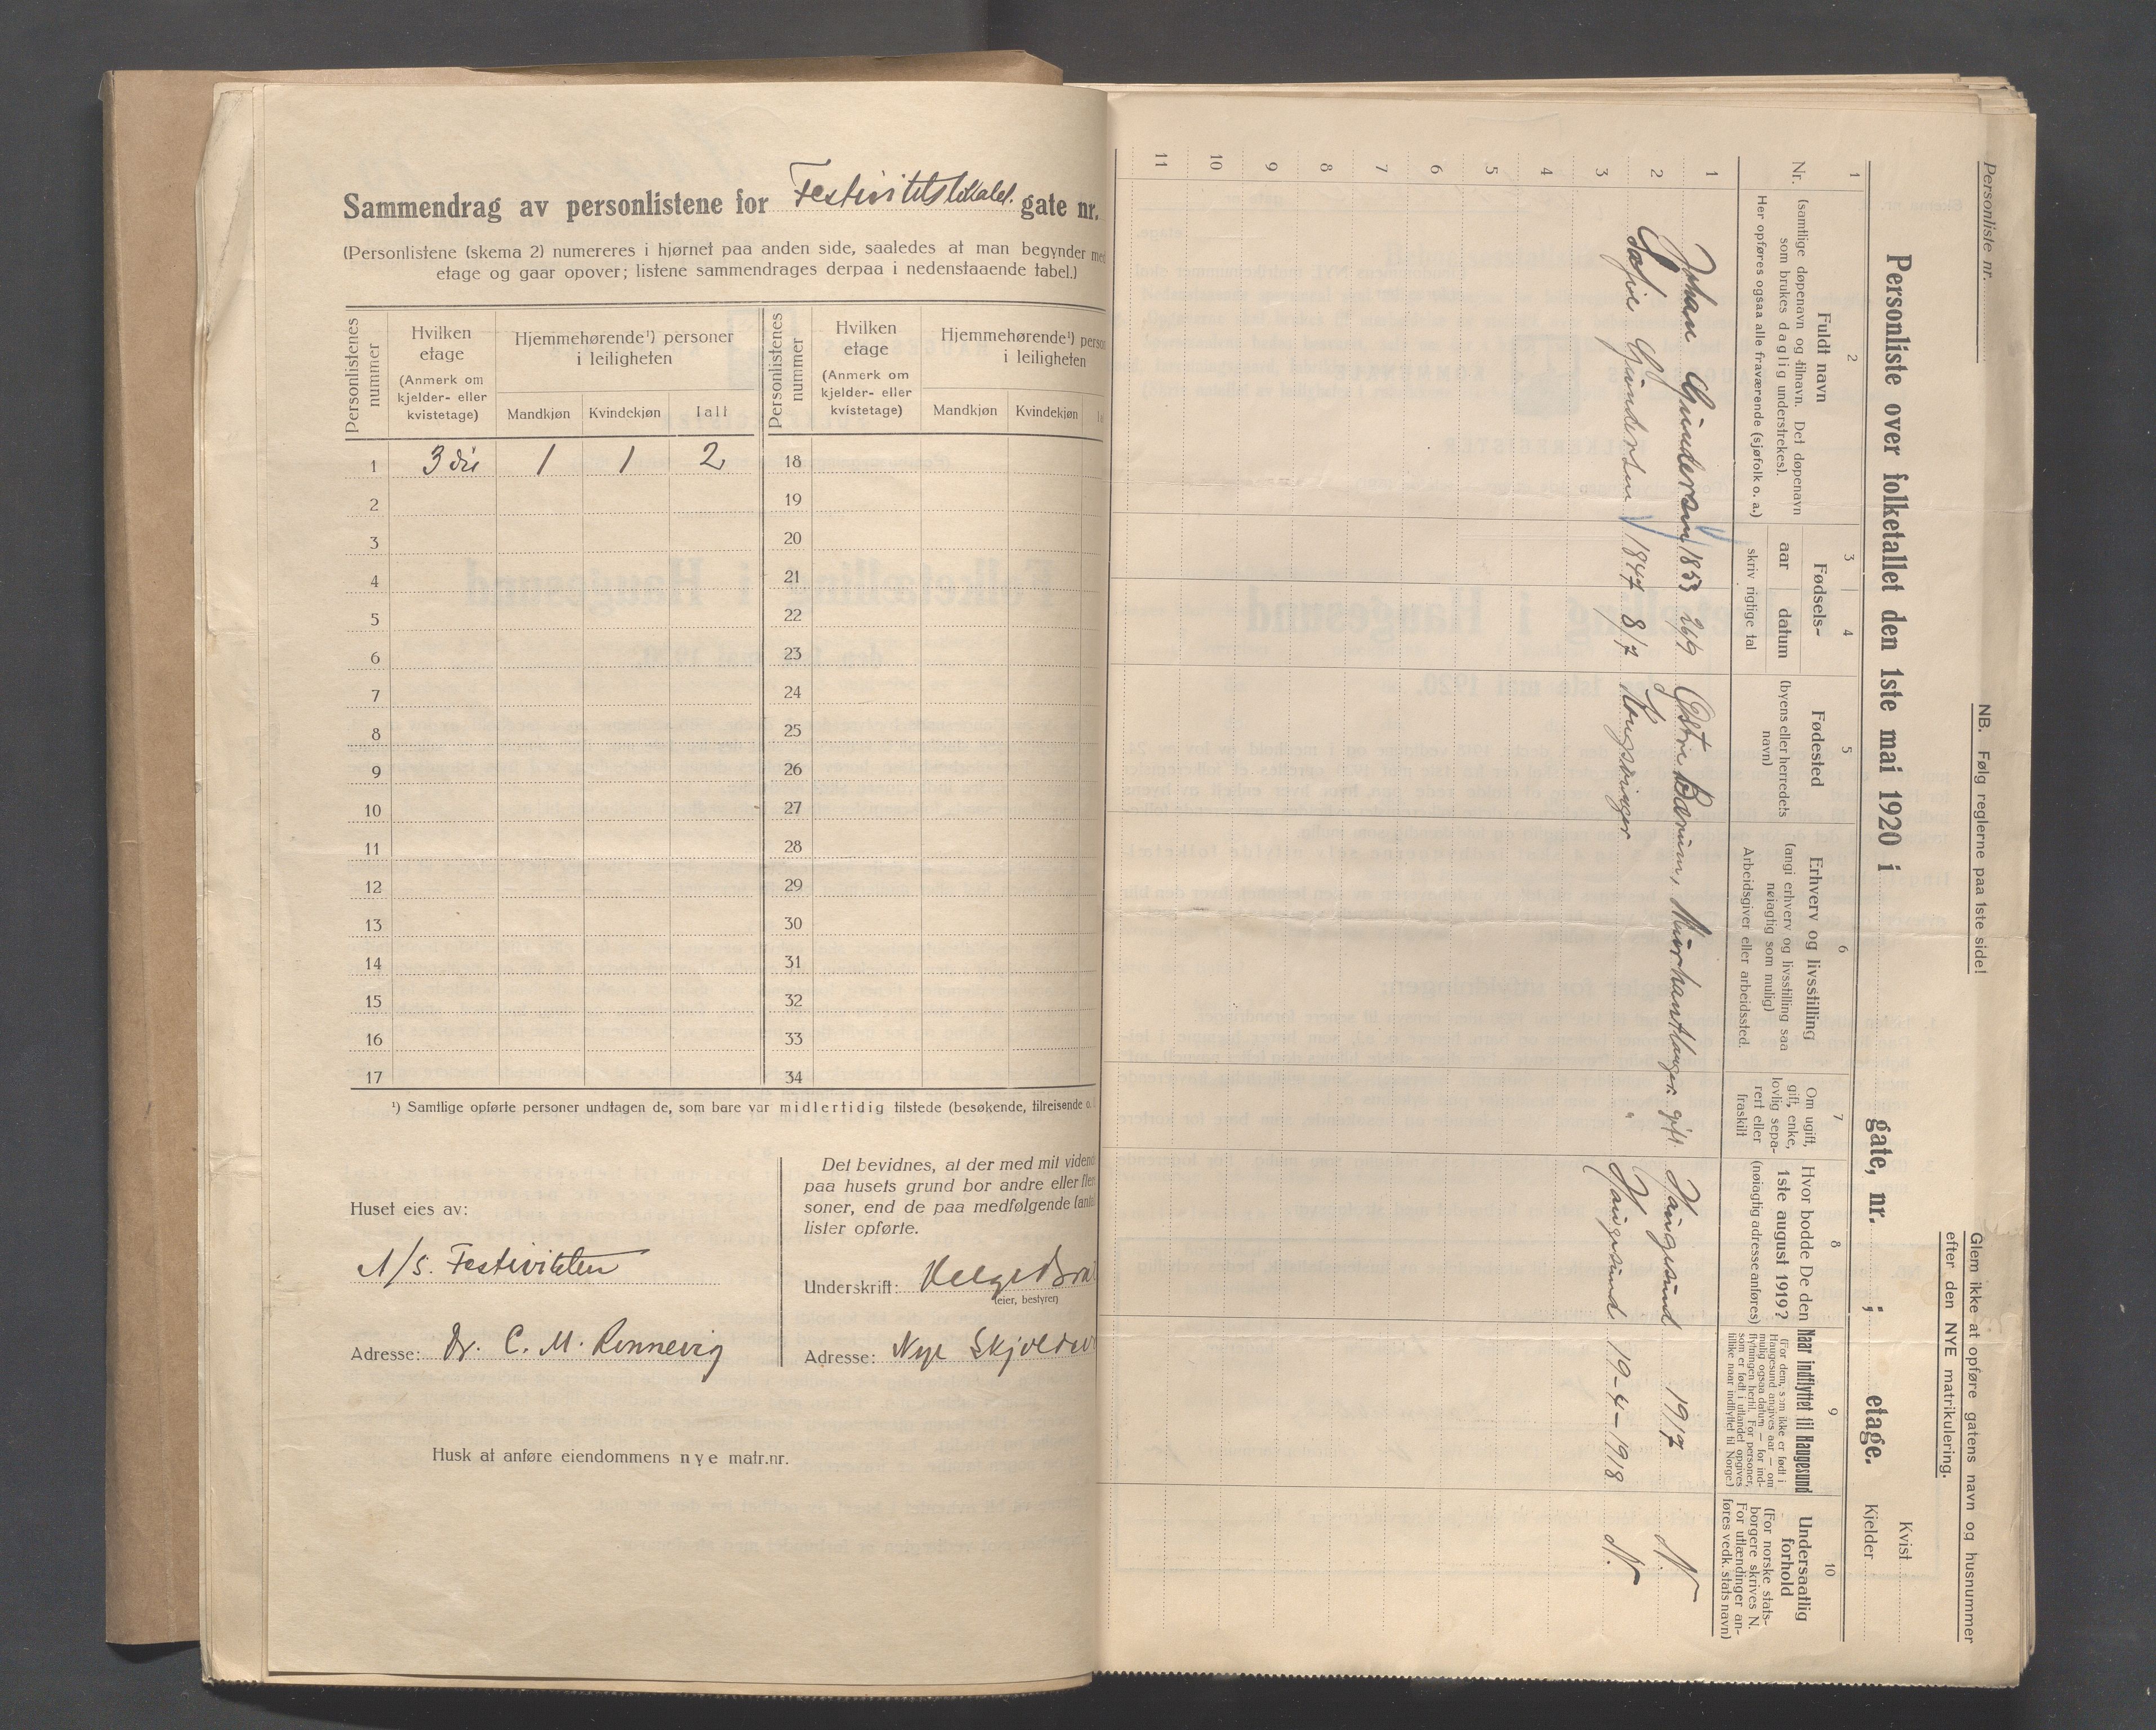 Sammendrag av personlistene for Festivitetslokalet. gate nr.
(Personlistene (skema 2) numereres i hjørnet paa anden side, saaledes at man begynder med
etage og gaar opover; listene sammendrages derpaa i nedenstaaende tabel.)
Personlistenes nummer
Hvilken etage
(Anmerk om kjelder- eller kvistetage)
Hjemmehørende¹) personer i leiligheten
Mandkjøn Kvindekjøn Ialt
Personlistenes nummer
Hvilken etage
(Anmerk om kjelder- eller kvistetage)
Hjemmehørende¹) person
i leiligheten
Mandkjøn Kvindekjøn Ia
1 3die 1 1 2 18
2 19
3 20
4 21
5 22
6 23
7 24
8 25
9 26
10 27
11 28
12 29
13 30
14 31
15 32
16 33
17 34
¹) Samtlige opførte personer undtagen de, som bare var midlertidig tilstede (besøkende, tilreisende o.
Huset eies av:
A/S. Festiviteten
Adresse: Dr. C. M. Rønnevig
Det bevidnes, at der med mit vidend
paa husets grund bor andre eller fler
soner, end de paa medfølgende (antal
lister opførte.
Underskrift: Helge
(eier, bestyrer)
Adresse: Nye Skjoldav
Husk at anføre eiendommens nye matr.nr.
Personliste nr.
NB. Følg reglerne paa 1ste side!
Glem ikke at opføre gatens navn og husnummer
efter den NYE matrikulering.
Personliste over folketallet den 1ste mai 1920 i gate, nr. ; etage.
Kvist
Kjelder
1 2 3 4 5 6 7 8 9 10
Nr.
Fuldt navn
(samtlige døpenavn og tilnavn. Det døpenavn
som brukes daglig understrekes).
Her opføres ogsaa alle fraværende (sjøfolk o. a.)
Fødsels-
aar datum
skriv rigtige tal
Fødested
(byens eller herredets
navn)
Erhverv og livsstilling
(angi erhverv og livsstilling saa
nøiagtig som mulig)
Arbeidsgiver eller arbeidssted.
Om ugift,
gift, enke,
lovlig sepa-
rert eller
fraskilt
Hvor bodde De den
1ste august 1919?
(nøiagtig adresse anføres)
Naar indflyttet til Haugesund
(For dem, som ikke er født i
Haugesund angives aar — om
mulig ogsaa datum — for ind-
flytningen hertil. For personer,
som er født i utlandet opgives
tillike naar indflyttet til Norge.)
Undersaatlig
forhold
(For norske stats-
borgere skrives N.
For utlændinger an-
føres vedk. stats navn)
1 Johan Gundersen 1853 24/9 Østre Bærum, Murhantlanger. gift. Haugesund 1917 N.
2 Sofie Gundersen 1847 8/7 Kongsvinger " Haugesund 19-4-1918 N.
3
4
5
6
7
8
9
10
11